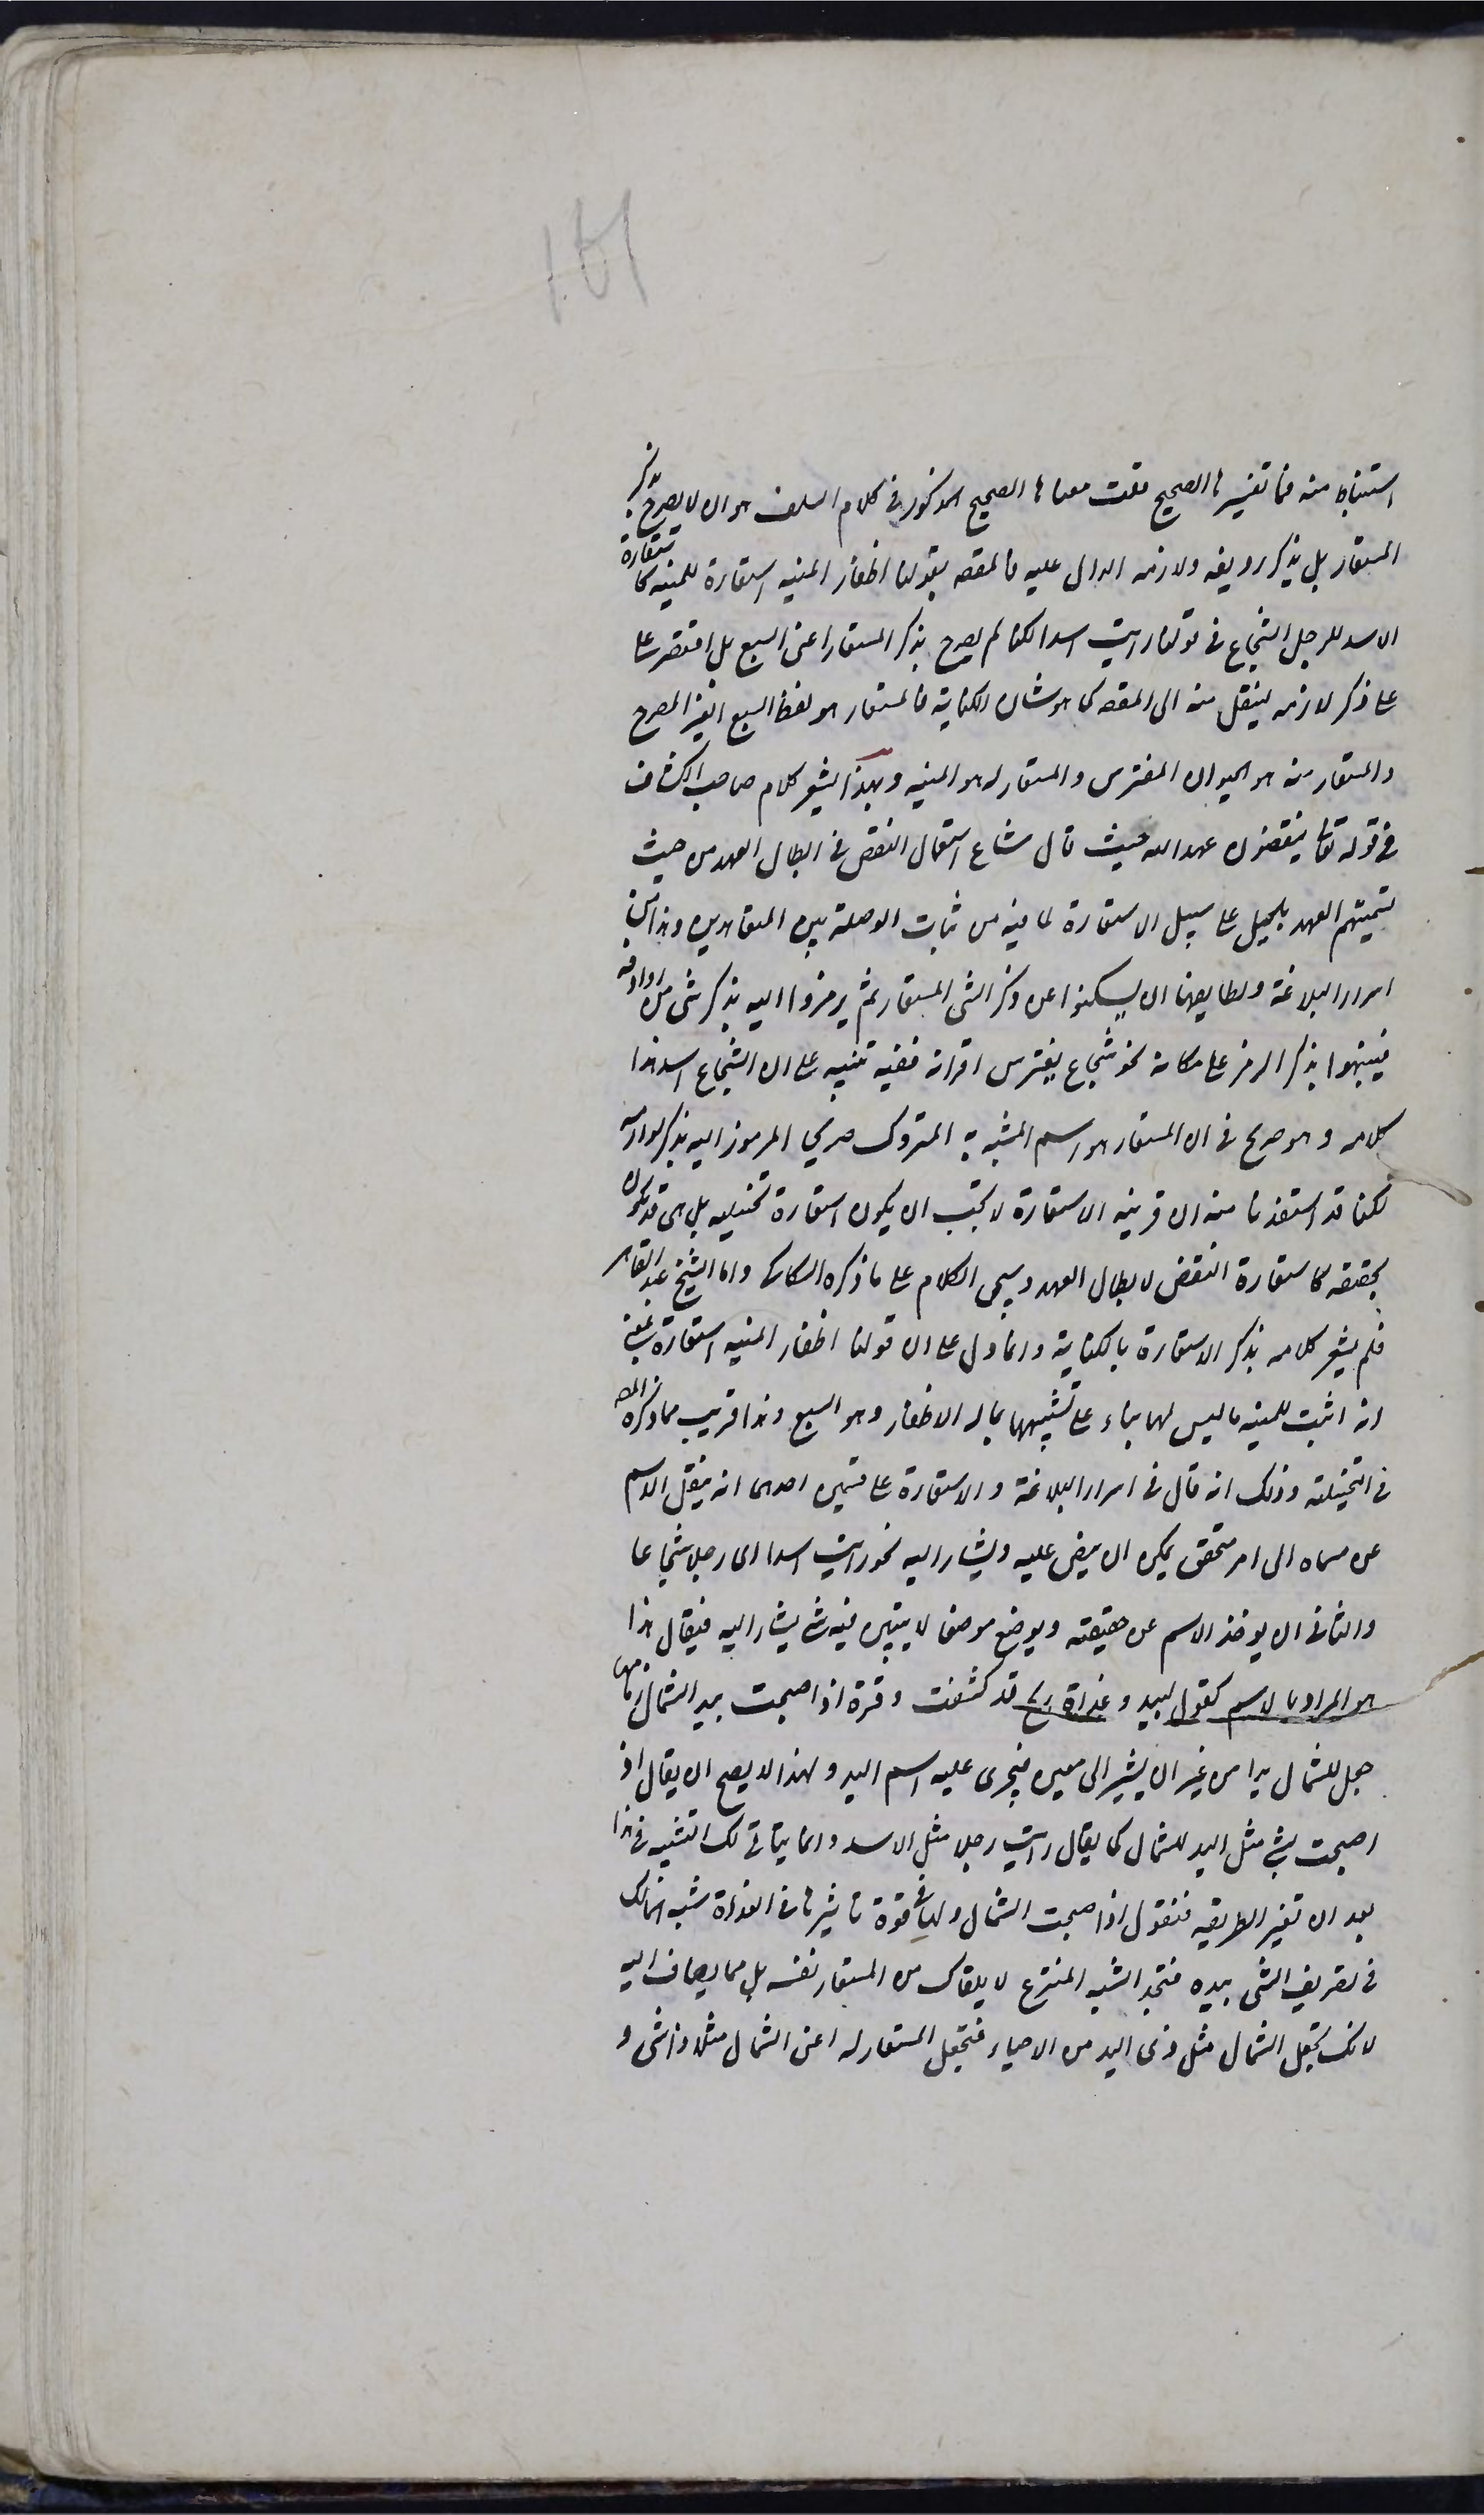 استنباطا منه فما تفسيرها الصحيح قلت معناها الصحيح المذكور في كلام السلف هو ان لا يصرح بذكر
المستعار بل بذكر رديفه ولازمه الدال عليه فالمقصد بقولنا اظفار المنيه استعارة للمنيه كاستعارة
الاسد للرجل الشجاع في قولنا رايت اسدا لكنا لم يصرح بذكر المستعار اعنى السبع بل اقتصر على
على ذكر لازمه لينقل منه الى المقصد كما هو شان الكناية فالمستعار هو لفظ السبع الغير المصرح
والمستعار منه هو الحيوان المفترس والمستعار له هو المنيه وبهذا يشعر كلام صاحب الكشاف
فى قوله تعالى ينقضون عهد الله حيث قال شاع استعمال النقض في ابطال العهد من حيث
تسميتهم العهد بالحبل على سبيل الاستعارة لما فيه من ثبات الوصلة بين المتعاهدين وهذا من
اسرار البلاغة ولطايفها ان يسكتوا عن ذكر الشى المستعار ثم يرمزوا اليه بذكر شى من روادفه
فينبهوا بذكر الرمز على مكانه نحو شجاع يفترس اقرانه ففيه تنبيه على ان الشجاع اسد هذا
كلامه و هو صريح فى ان المستعار هو اسم المشبه به المتروك صريحا المرموز اليه بذكر لوازمه
لكنا قد استفدنا منه ان قرينه الاستعارة لا يجب ان يكون استعارة تخييليه بل هى قد تكون
تحقيقه كاستعارة النقض لابطال العهد وسيجى الكلام على ما ذكره السكاكى واما الشيخ عبد القاهر
فلم يشعر كلامه بذكر الاستعارة بالكناية وانما دل على ان قولنا اظفار المنيه استعارة بمعنى
انه اثبت للمنيه ما ليس لها بناء على تشبيهها بما له الاظفار وهو السبع وهذا قريب مما ذكره المص
فى التخييلية وذلك انه قال فى اسرار البلاغة والاستعارة على قسمين احدهما انه ينقل الاسم
عن مسماه الى امر متحقق يمكن ان ينص عليه ويشار اليه نحو رايت اسدا اى رجلا شجاعا
والثانى ان يوخذ الاسم عن حقيقته ويوضع موضعا لا يتبين فيه شى يشار اليه فيقال هذا
هو المراد بالاسم كقول لبيد وغداة ريح قد كشفت وقرة اذ اصبحت بيد الشمال زمامها
جعل للشمال يدا من غير ان يشير الى معين فيجرى عليه اسم اليد ولهذا لا يصح ان يقال اذ
اصبحت بشى مثل اليد للشمال كما يقال رايت رجلا مثل الاسد وانما يتاتى لك التشبيه فى هذا
بعد ان تغير الطريقه فنقول اذ اصبحت الشمال ولها فى قوة تاثيرها فى الغداة شبه المالك
فى تصريف الشى بيده فتجد الشبه المنتزع لا يلقاك من المستعار نفسه بل مما يضاف اليه
لانك تجعل الشمال مثل ذى اليد من الاحياء فتجعل المستعار له اعنى الشمال مثلا ذا شى و